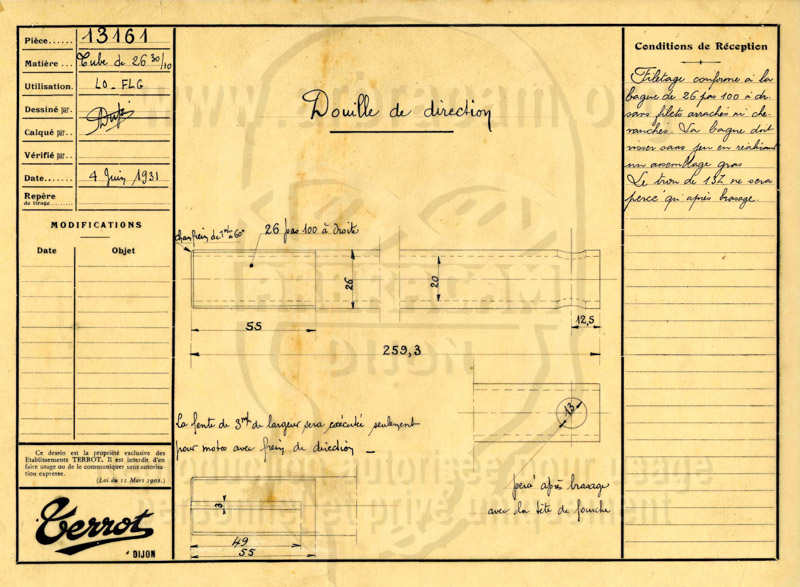 Pièce...... 13161
Matière... Tube de 26 30/10
Utilisation. LO_FLG
Dessiné par.
Calqué par..
Vérifié par..
Date....... 4 Juin 1931
Repère
de tirage........
MODIFICATIONS
Date Objet
Ce dessin est la propriété exclusive des
Etablissements TERROT. Il est interdit d'en
faire usage ou de le communiquer sans autorisa-
tion expresse.
(Loi du 12 Mars 1902.)
Terrot
à DIJON
Douille de direction
chanfrein de 1 m/m à 60°
26 pas 100 à droite
26
20
55
12,5
259,3
13
La fente de 3 m/m de largeur sera exécutée seulement
pour motos avec frein de direction _
percé après brasage
avec la tête de fourche
3
49
55
Conditions de Réception
Filetage conforme à la
bague de 26 pas 100 à dr.
sans filets arrachés ni che-
vauchés. La bague doit
visser sans jeu en réalisant
un assemblage gras
Le trou de 13 ne sera
percé qu'après brasage.
www.arbracam.org
ARBRACAM
DIJON
Reproduction autorisée pour usage
personnel et privé uniquement